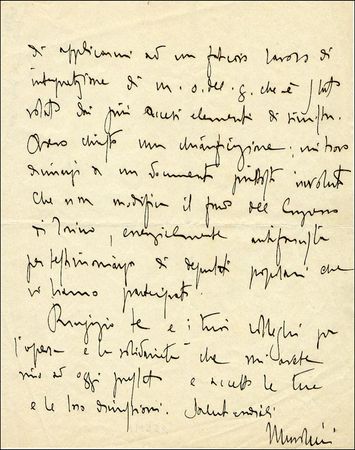 di applicarmi ad un faticoso lavoro di
interpretazione di un o. del g. che è stato
votato dai più accesi elementi di sinistra.
Avevo chiesto una chiarificazione; mi trovo
dinnanzi a un documento piuttosto involuto
che non modifica il fondo del Congresso
di Torino, energicamente antifascista
per testimonianza di deputati popolari che
vi hanno partecipato.
Ringrazio te e i tuoi colleghi per
l'opera e la solidarietà che mi avete
sino ad oggi prestato e accetto le tue
e le loro dimissioni. Saluti cordiali
Mussolini